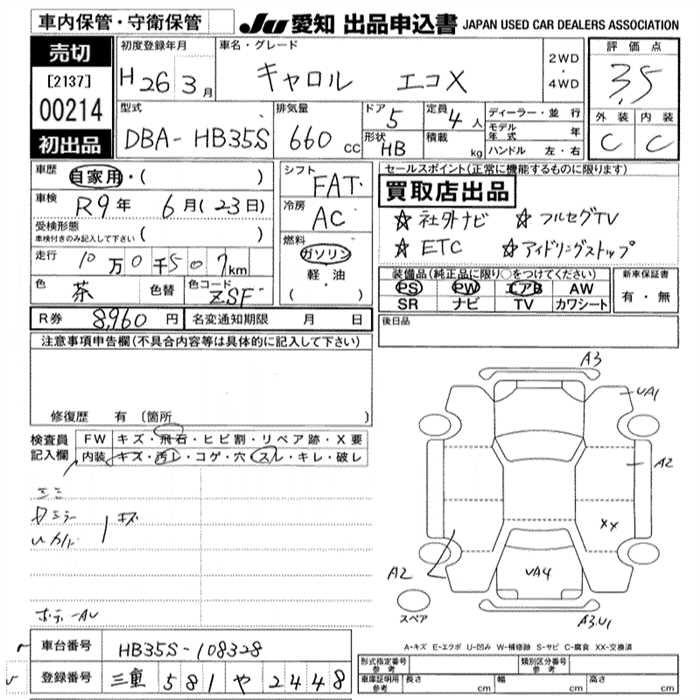 車内保管・守衛保管
JU 愛知 出品申込書 JAPAN USED CAR DEALERS ASSOCIATION
売切
[2137]
00214
初出品
初度登録年月
H 26 3月
車名・グレード
キャロル エコX
2WD
・
4WD
評価点
3.5
外装 内装
C C
型式
DBA-HB35S
排気量
660 CC
ドア 5
形状 HB
定員 4人
積載 kg
ディーラー・並行
モデル年式 年
ハンドル 左・右
車歴
自家用・( )
車検
R9年 6月(23日)
受検形態
車検付きのみ記入して下さい ( )
走行 10万0千507km
色 茶 色替 色コード ZSF
シフト
FAT
冷房
AC
燃料
ガソリン
軽・油
・( )
セールスポイント(正常に機能するものに限ります)
買取店出品
☆社外ナビ ☆フルセグTV
☆ETC ☆アイドリングストップ
装備品(純正品に限り○をつけてください)
PS PW エアB AW
SR ナビ TV カワシート
新車保証書
有・無
R券 8,960円 名変通知期限 月 日
後日品
注意事項申告欄(不具合内容等は具体的に記入して下さい)
修復歴 有 〔箇所
検査員
記入欄
FW キズ・飛石・ヒビ割・リペア跡・X要
内装 キズ・汚レ・コゲ・穴・スレ・キレ・破レ
キズ
A3
UA1
A2
XX
A2
UA4
スペア
A3.U1
A-キズ E-エクボ U-凹み W-補修跡 S-サビ C-腐食 XX-交換済
車台番号 HB35S-108328
登録番号 三重 581 や 2448
形式指定番号
参考
類別区分番号
参考
車庫証明用
参考
長さ cm 幅 cm 高さ cm